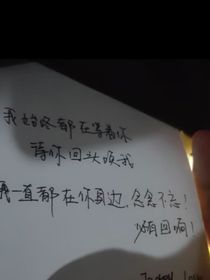 我始终都在等着你
等你回头 我
我一直都在你身边,念念不忘!
必有回响!